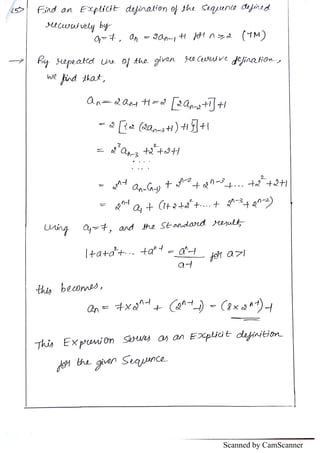 15> Find an Explicit definition of the Sequence defined
recursively by
a₁=7, aₙ = 2aₙ₋₁ +1 for n≥2 (7M)
→ By repeated use of the given recursive definition,
we find that,
aₙ = 2aₙ₋₁ +1 = 2[2aₙ₋₂+1]+1
= 2[{2 (2aₙ₋₃+1)+1}]+1
= 2³aₙ₋₃ +2²+2+1
. . . .
. . .
= 2ⁿ⁻¹ aₙ₋₍ₙ₋₁₎ + 2ⁿ⁻² + 2ⁿ⁻³ + ... +2²+2+1
= 2ⁿ⁻¹ a₁ + (1+2+2²+...+ 2ⁿ⁻³+2ⁿ⁻²)
Using a₁=7, and the Standard result,
1+a+a²+... +aⁿ⁻¹ = aⁿ-1 / a-1 for a>1
this becomes,
aₙ = 7×2ⁿ⁻¹ + (2ⁿ⁻¹-1) = (8×2ⁿ⁻¹)-1
This Expression Serves as an Explicit definition
for the given Sequence
Scanned by CamScanner